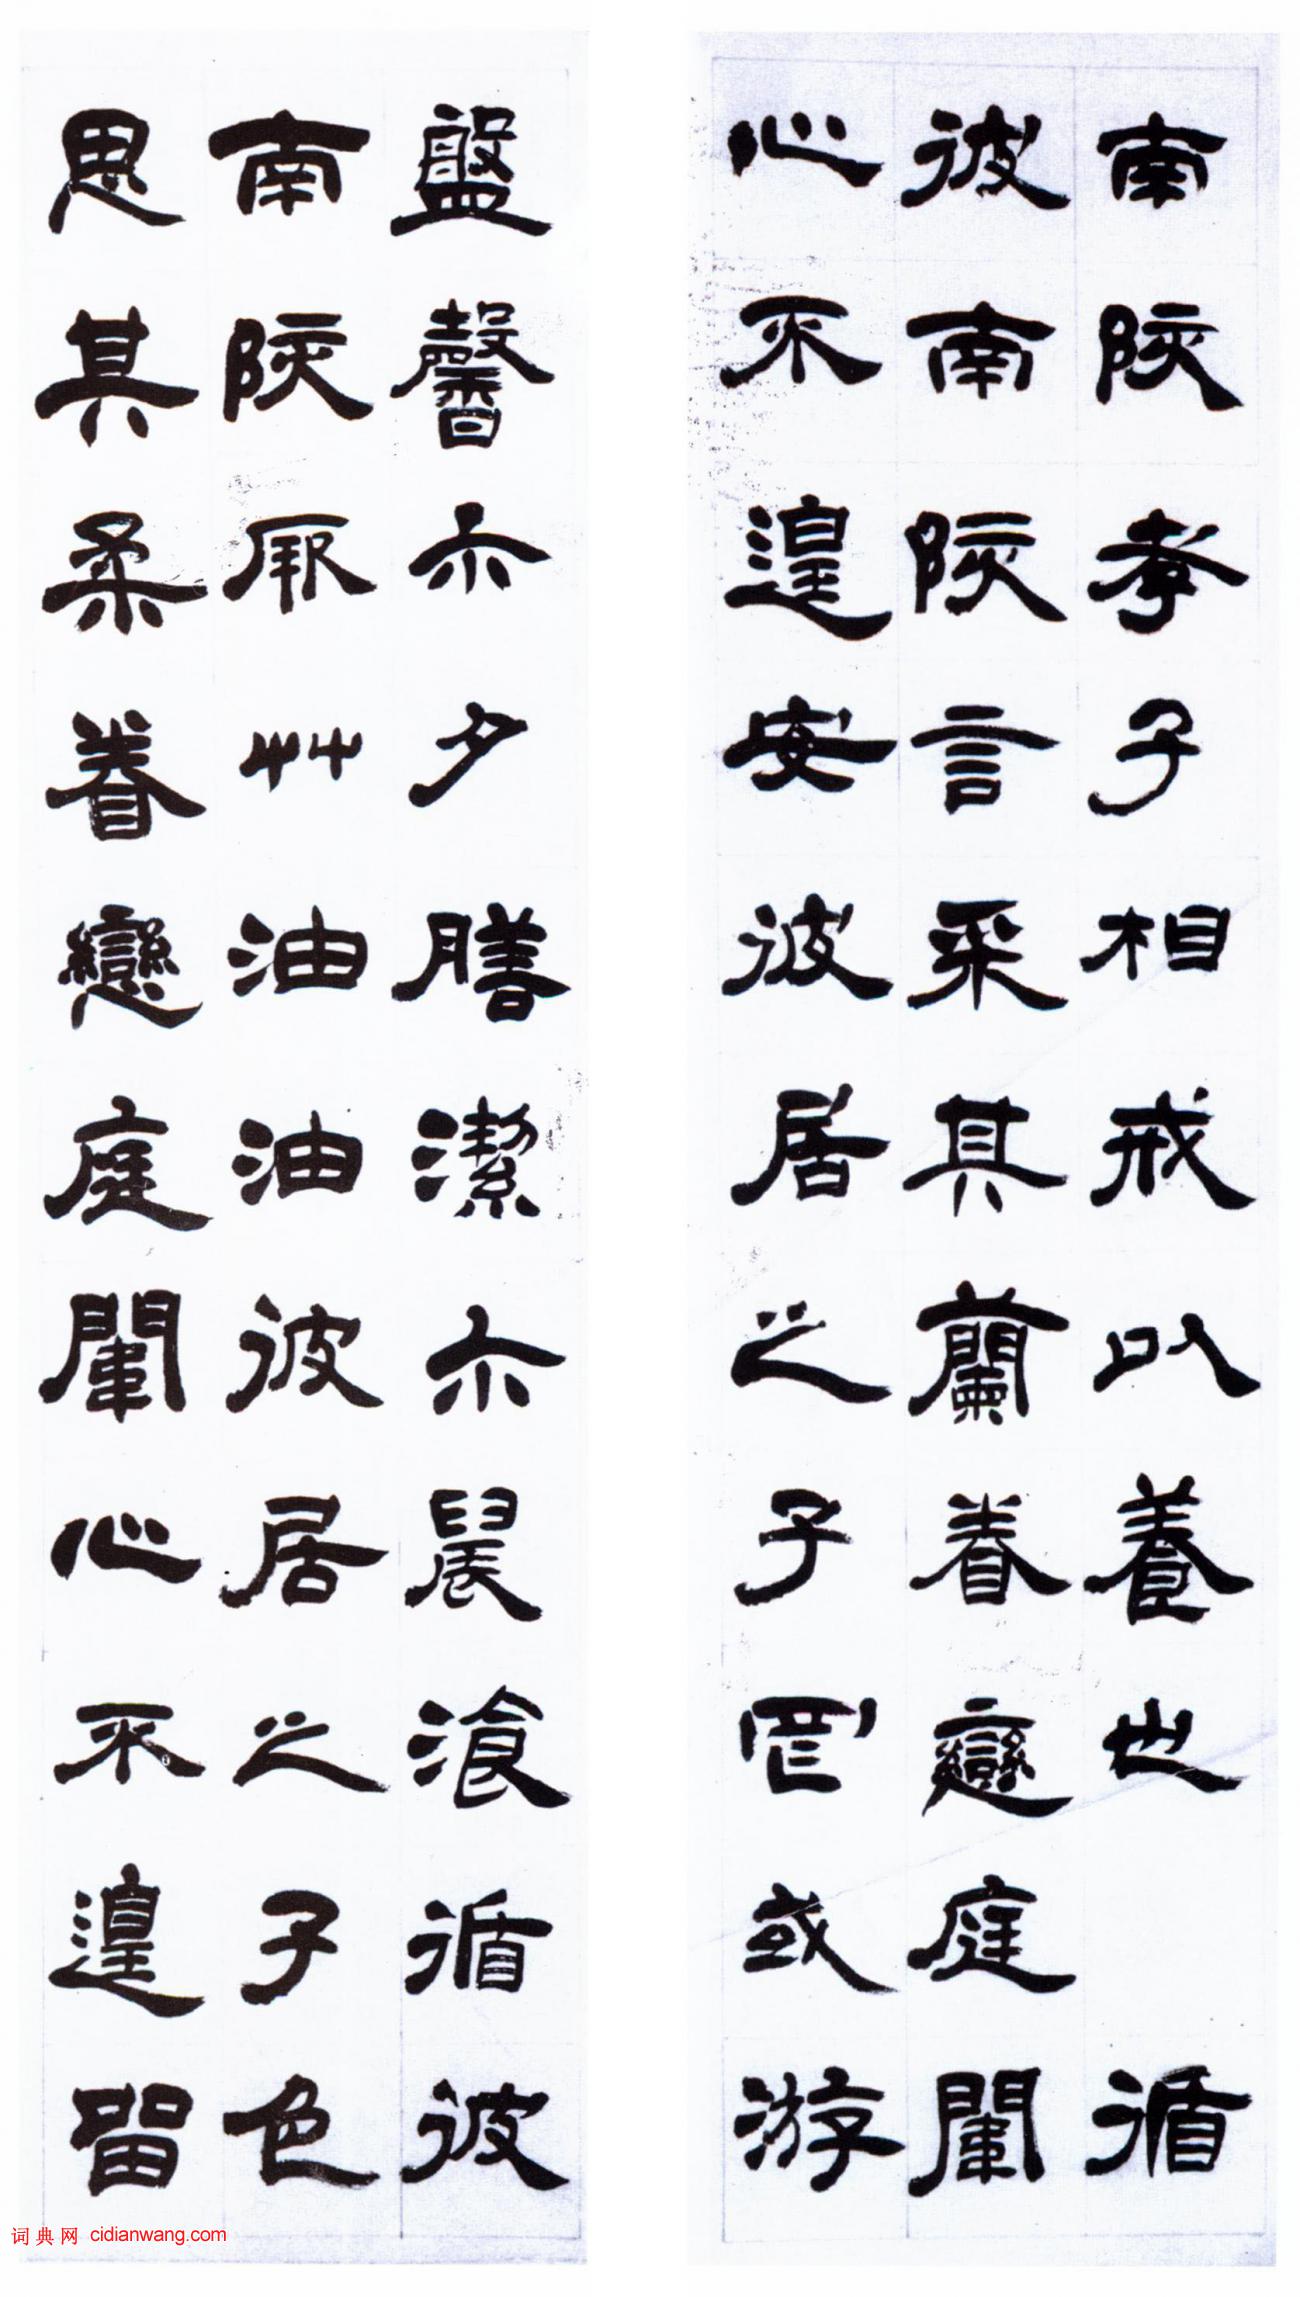 南陔孝子相戒以養也 循
彼南陔言采其蘭眷戀庭闈
心不遑安彼居之子罔或游
盤馨尔夕膳潔尔晨湌循彼
南陔厥艸油油彼居之子色
思其柔眷戀庭闈心不遑留
词典网 cidianwang.com